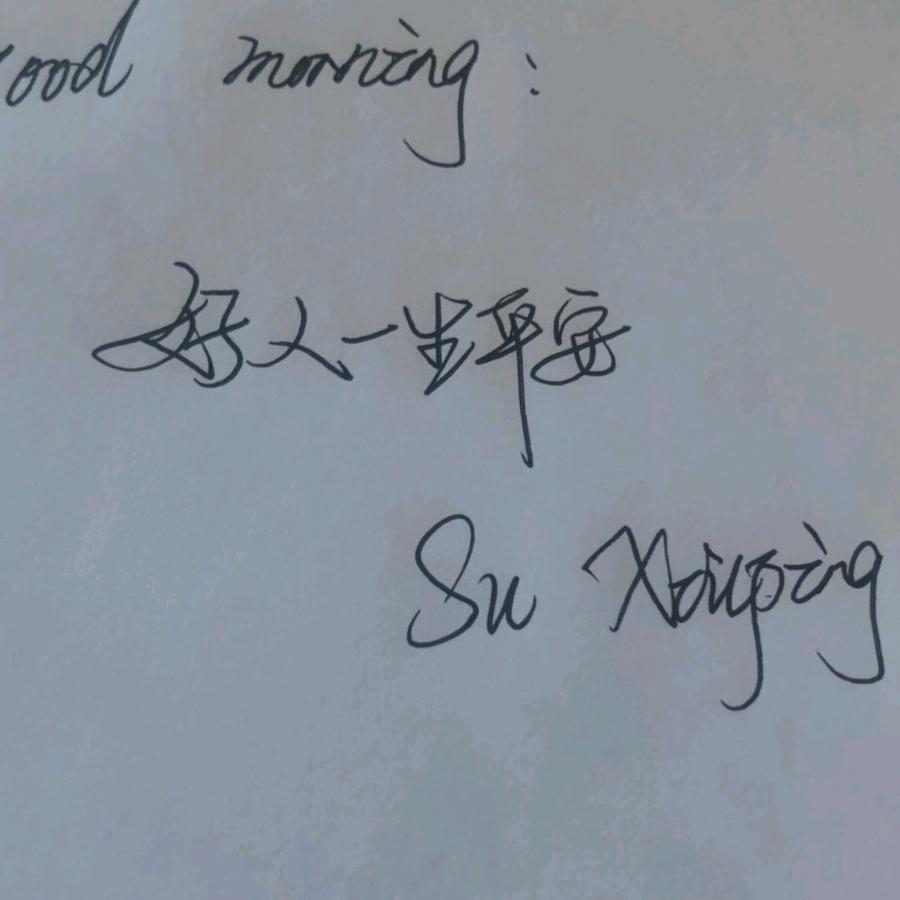 ood morning:
好人一生平安
Su